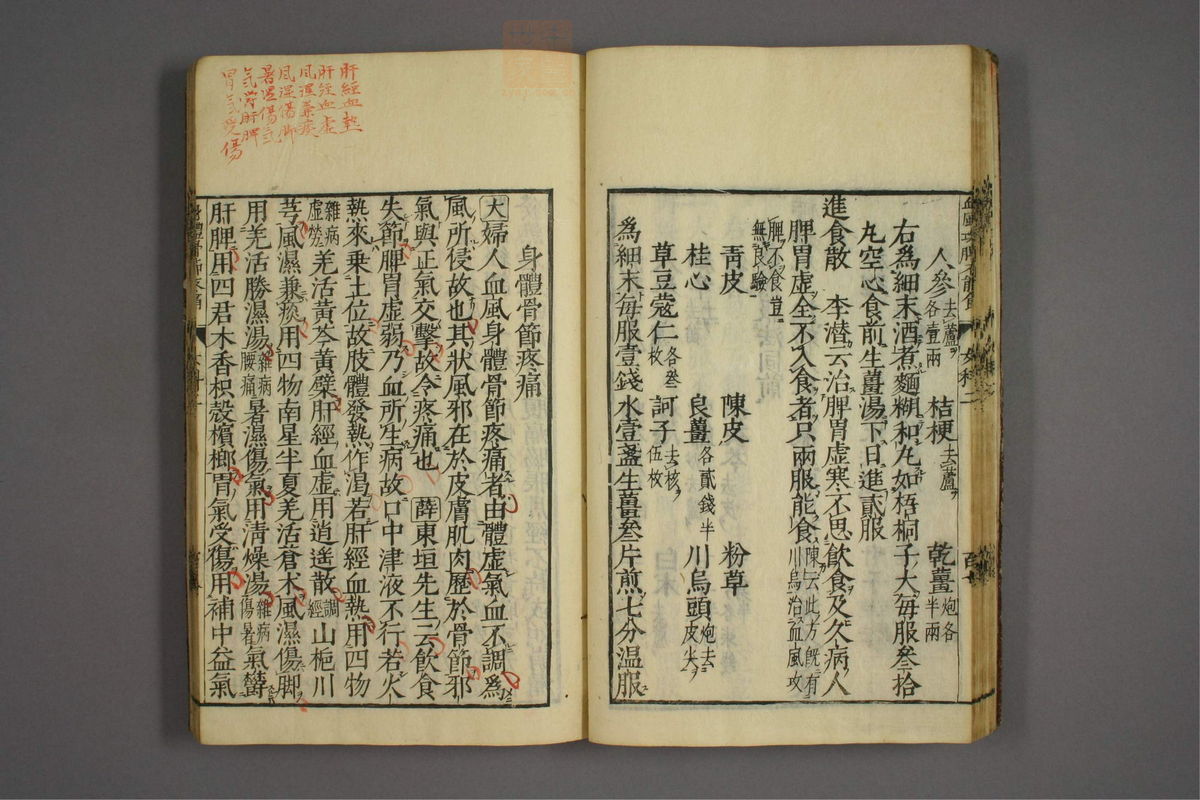 人參去蘆各壹兩 桔梗去蘆 乾薑炮各半兩
右爲細末酒煮麵糊和丸如梧桐子大每服叄拾
丸空心食前生薑湯下日進貳服
進食散 李潛云治脾胃虛寒不思飲食及久病人
脾胃虛全不入食者只兩服能食陳云此方旣有川烏治血風攻
脾不食豈無良驗
靑皮 陳皮 粉草
桂心 良薑各貳錢半 川烏頭炮去皮尖
草豆蔻仁各叄枚 訶子去核伍枚
爲細末每服壹錢水壹盞生薑叄片煎七分溫服
身體骨節疼痛
大婦人血風身體骨節疼痛者由體虛氣血不調爲
風所侵故也其狀風邪在於皮膚肌肉歷於骨節邪
氣與正氣交擊故令疼痛也 薛東垣先生云飲食
失節脾胃虛弱乃血所生病故口中津液不行若火
熱來乘土位故肢體發熱作渴若肝經血熱用四物
雜病虛勞羌活黃芩黃蘗肝經血虛用逍遙散調經山梔川
芎風濕兼痰用四物南星半夏羌活蒼朮風濕傷脚
用羌活勝濕湯雜病腰痛暑濕傷氣用淸燥湯雜病傷暑氣鬱
肝脾用四君木香枳殼檳榔胃氣受傷用補中益氣
肝經血熱
肝經血虛
風濕兼痰
風濕傷脚
暑濕傷氣
氣鬱肝脾
胃氣受傷